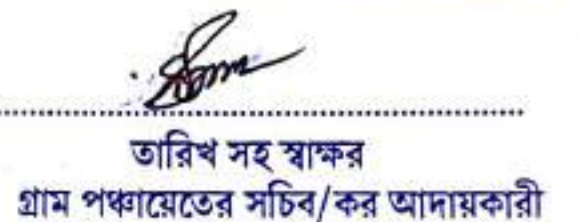 তারিখ সহ স্বাক্ষর
গ্রাম পঞ্চায়েতের সচিব/কর আদায়কারী